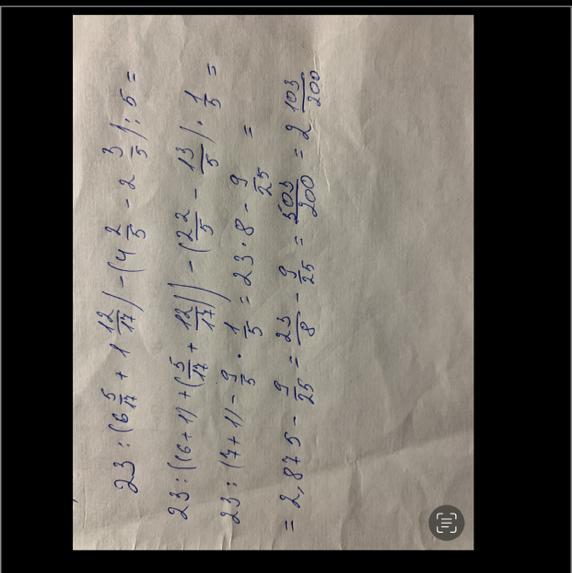 23 : (6 5/17 + 1 12/17) - (4 2/5 - 2 3/5) : 5 =
23 : ((6+1) + (5/17 + 12/17)) - (22/5 - 13/5) · 1/5 =
23 : (7+1) - 9/5 · 1/5 = 23 · 8 - 9/25 =
= 2,875 - 9/25 = 23/8 - 9/25 = 503/200 = 2 103/200